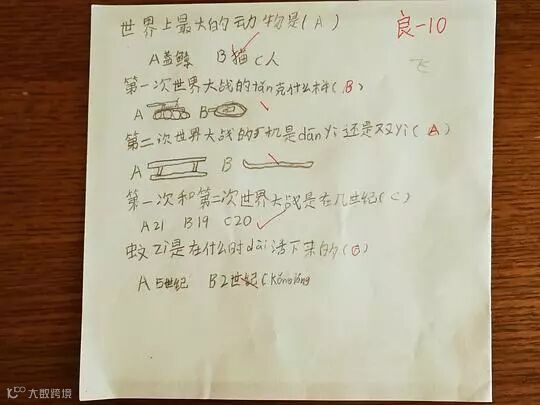 世界上最大的动物是(A)
良-10
A蓝鲸 B猫 C人
飞
第一次世界大战的tǎn克什么样(B)
A B
第二次世界大战的飞机是dān yì还是双yì(A)
A B
第一次和第二次世界大战是在几世纪(C)
A21 B19 C20
蚊zi是在什么时dài活下来的(B)
A 5世纪 B2世纪 C kǒng lóng
大数跨境